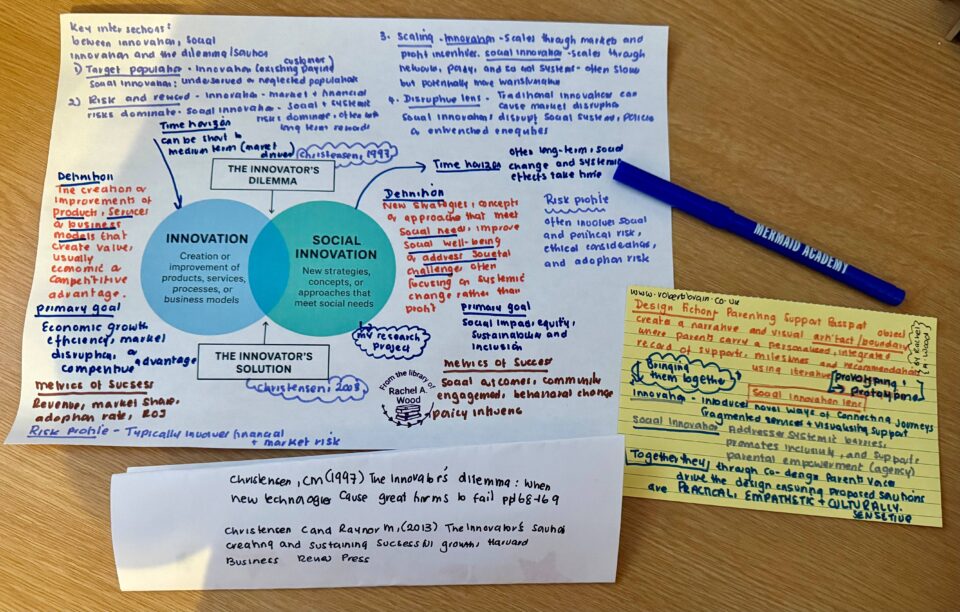 Key intersections:
between innovation, social
innovation and the dilemma/solution
1) Target population - Innovation (existing paying customer)
Social innovation: underserved or neglected populations
2) Risk and reward - innovation - market + financial
risks dominate - Social innovation - social + systemic
risks dominate, often with
long term rewards
3. Scaling - innovation - scales through markets and
profit incentives. social innovation - scales through
networks, policy, and social systems - often slow
but potentially more transformative
4. Disruptive lens - Traditional innovation can
cause market disruption
Social innovation disrupt social systems, policies
or entrenched inequities
Time horizon
can be short to
medium term (market driven)
Christensen, 1997
THE INNOVATOR'S
DILEMMA
Time horizon
often long-term, social
change and systemic
effects take time
Definition
The creation or
improvements of
products, services
or business
models that
create value,
usually
economic or
competitive
advantage.
INNOVATION
Creation or
improvement of
products, services,
processes, or
business models
SOCIAL
INNOVATION
New strategies,
concepts, or
approaches that
meet social needs
Definition
New strategies, concepts
or approaches that meet
social needs, improve
social well-being
or address societal
challenges often
focusing on systemic
change rather than
profit
Risk profile
often involves social
and political risk,
ethical considerations,
and adoption risk
primary goal
Economic growth
efficiency, market
disruption, or
competitive advantage
THE INNOVATOR'S
SOLUTION
Christensen, 2003
my research
project
primary goal
Social impact, equity,
sustainability and
inclusion
Metrics of success
Revenue, market share,
adoption rate, ROI
Risk profile - Typically involves financial
+ market risk
From the library of
Rachel A.
Wood
Metrics of success
Social outcomes, community
engagement, behavioral change
policy influence
MERMAID ACADEMY
www.robertbrain.co.uk
Design Fiction: Parenting Support Passport object/boundary
create a narrative and visual artifact
where parents carry a personalised, integrated
record of supports, milestones and recommendations
using iterative prototyping:
prototype
BY RACHEL
A WOOD
Bringing
them together
Social innovation lens
innovation - introduces novel ways of connecting journeys
fragmented services + visualising support
Social innovation Addresses systemic barriers,
promotes inclusivity, and supports
parental empowerment (agency)
Together they through co-design parents voice
drive the design ensuring proposed solutions
are PRACTICAL, EMPATHETIC + CULTURALLY
SENSITIVE
Christensen, CM (1997) The Innovator's dilemma: When
new technologies cause great firms to fail pp168-169
Christensen C and Raynor M, (2013) The Innovator's solution
creating and sustaining successful growth, Harvard
Business Review Press